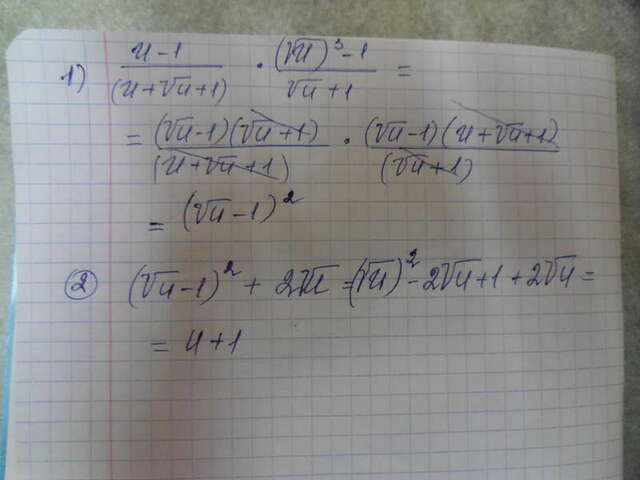 1) (u-1)/(u+√u+1) · ((√u)³-1)/(√u+1) =
= (√u-1)(√u+1)/(u+√u+1) · (√u-1)(u+√u+1)/(√u+1)
= (√u-1)²
② (√u-1)² + 2√u = (√u)² - 2√u+1 + 2√u =
= u+1